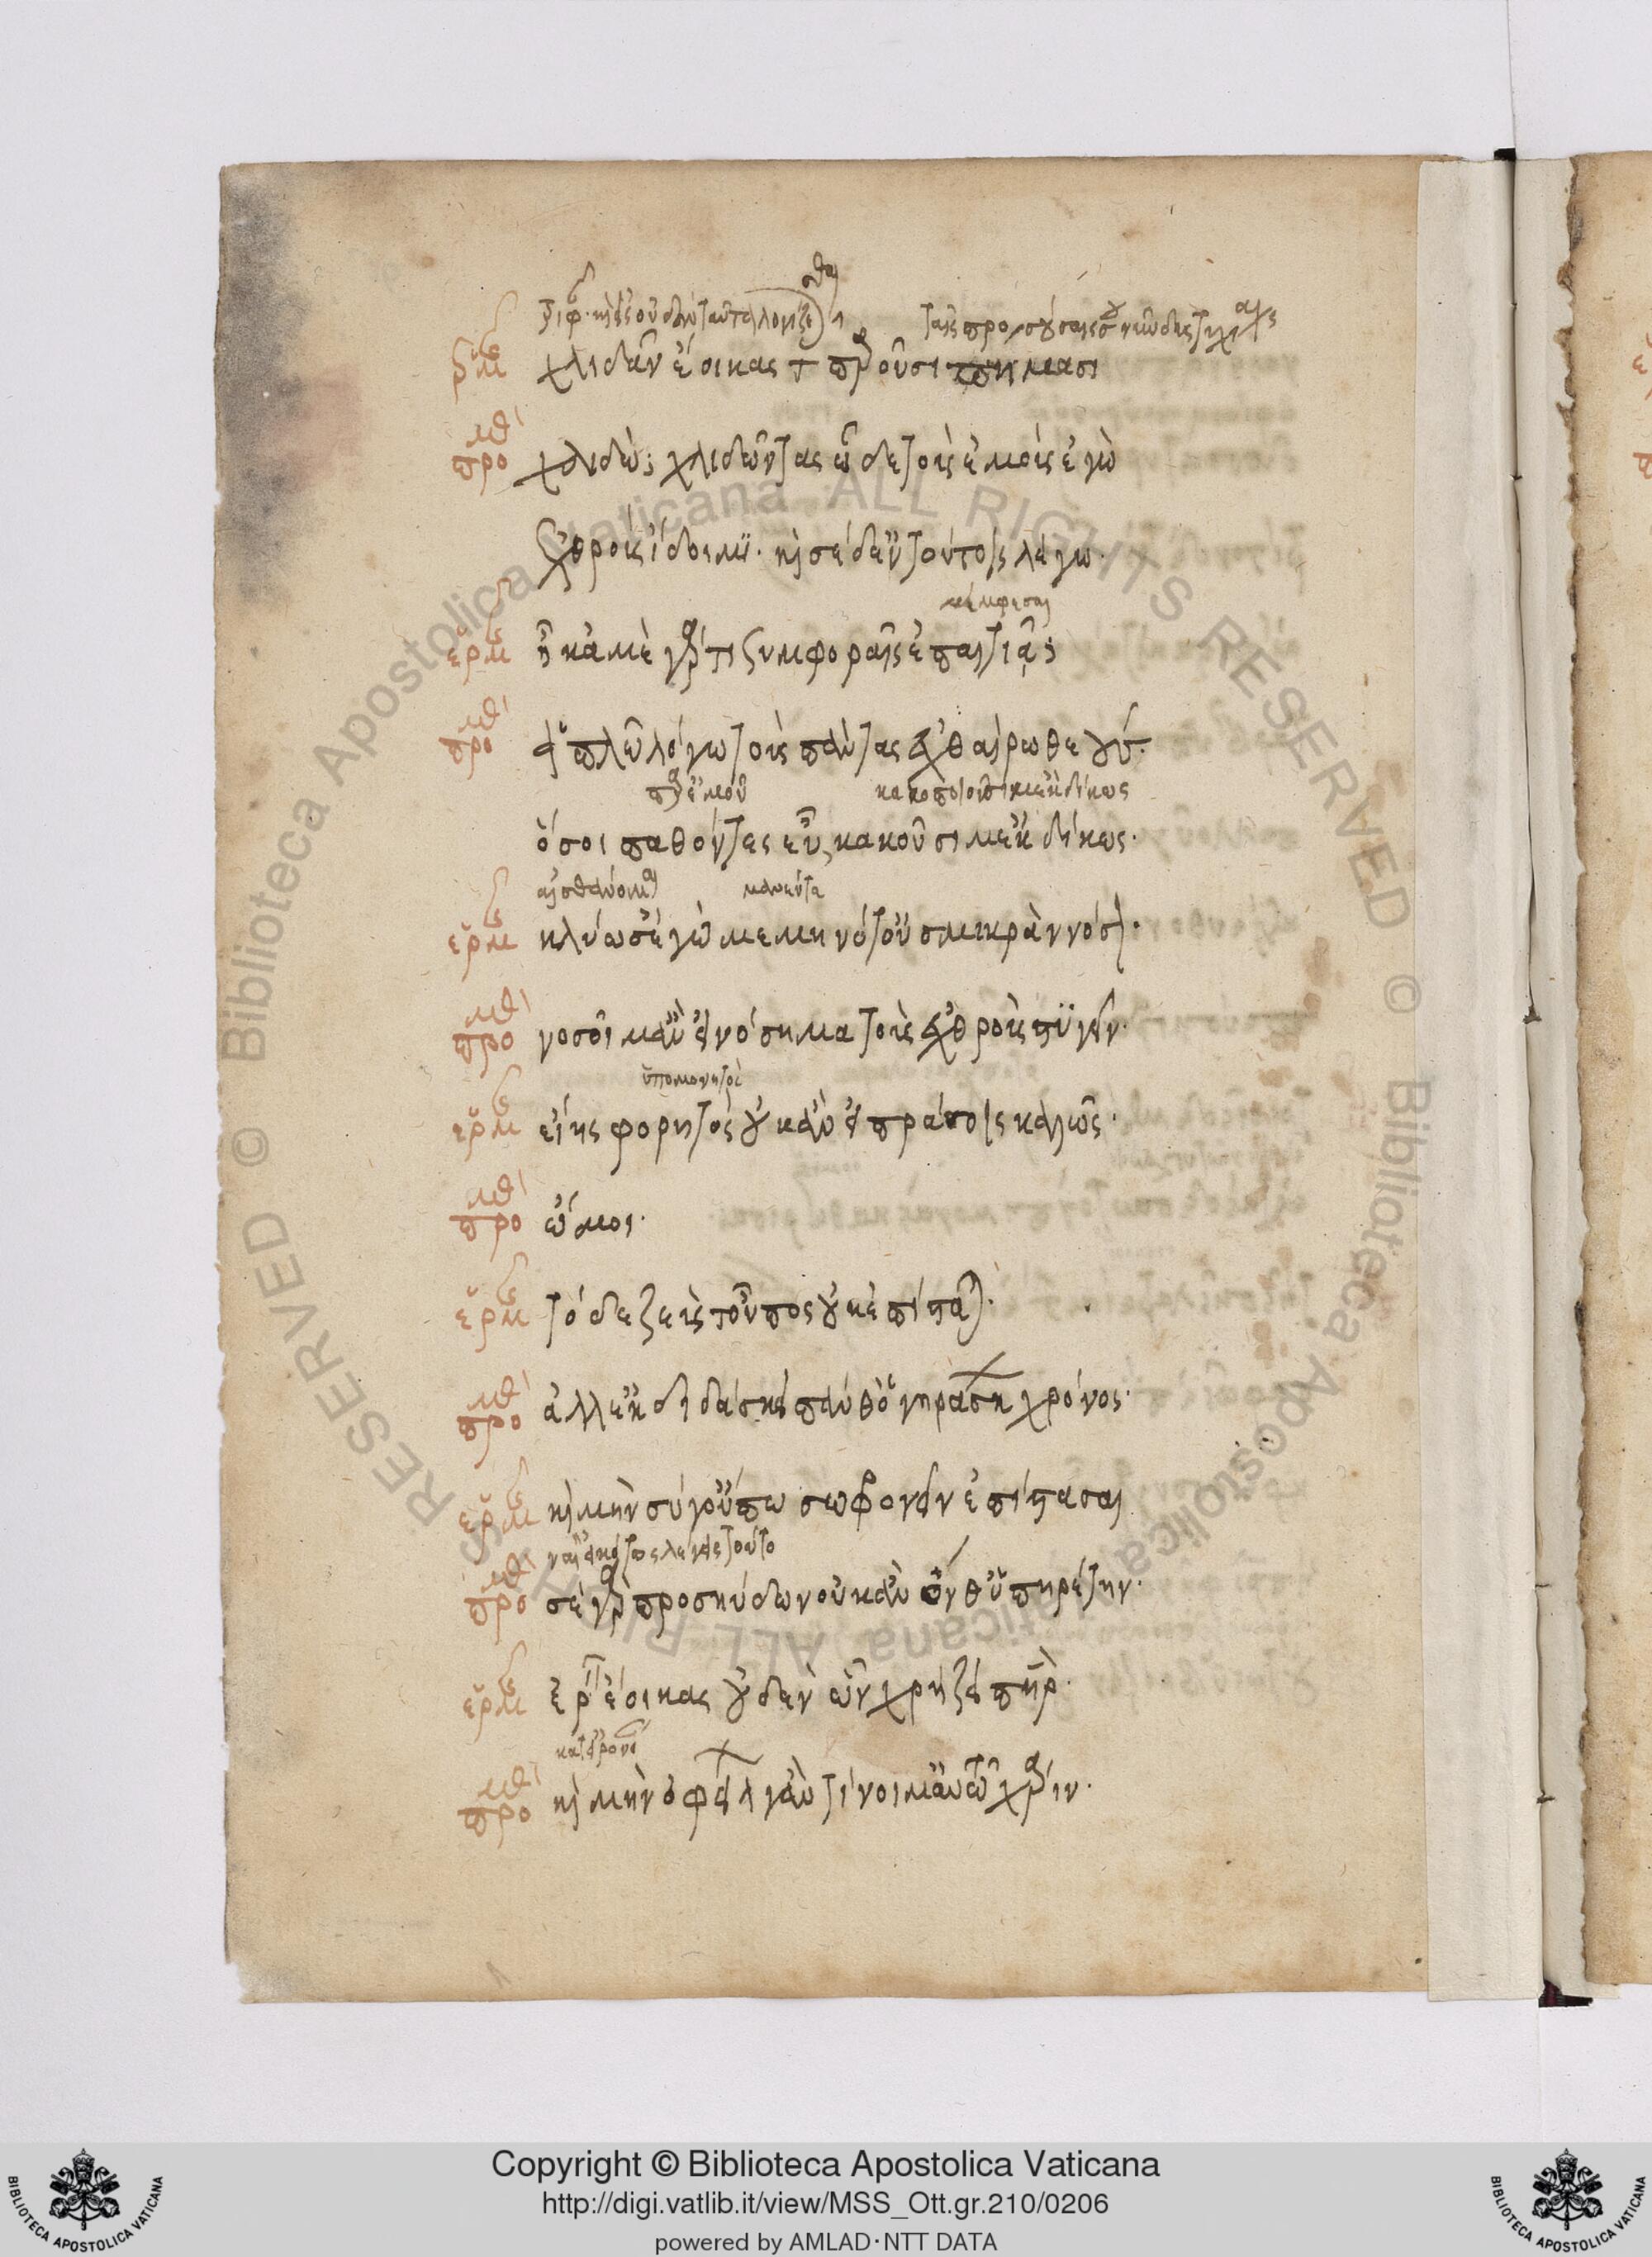 ἑρμ χλιδᾶν ἔοικας τ παροῦσι πήμασι
προμθ χλιδῶ; χλιδῶντας ὧδε τοὺς ἐμοὺς ἐγὼ
ἐχθροὺς ἴδοιμι. καὶ σὲ δ' ἐν τούτοις λέγω.
μέμφεσαι
ἑρμ ἦ κἀμὲ γάρ τι ξυμφοραῖς ἐπαιτιᾷ;
προμθ ἁπλῶ λόγω τοὺς πάντας ἐχθαίρω θεούς.
παρ' ἐμοῦ κακοποιοῦσί με ἐκδίκως
ὅσοι παθόντες εὖ, κακοῦσι μ' ἐκδίκως.
αἰσθάνομαι μανέντα
ἑρμ κλύω σ' ἐγὼ μεμηνότ' οὐ σμικρὰν νόσον.
προμθ νοσοῖμ' ἂν εἰ νόσημα τοὺς ἐχθροὺς στυγεῖν.
ὑπομονητὸς
ἑρμ εἴης φορητὸς οὐκ ἂν εἰ πράσσοις καλῶς.
προμθ ὤμοι.
ἑρμ τόδε ζεὺς τοὖπος οὐκ ἐπίσταται.
προμθ ἀλλ' ἐκδιδάσκει πάνθ' ὁ γηράσκων χρόνος.
ἑρμ καὶ μὴν σύ γ' οὔπω σωφρονεῖν ἐπίστασαι
ναὶ εἰκότως λέγεις τοῦτο
προμθ σὲ γὰρ προσηύδων οὐκ ἂν ὄνθ' ὑπηρέτην.
ἑρμ ἐρεῖν ἔοικας οὐδὲν ὧν χρήζει πατήρ.
προμθ καὶ μὴν ὀφείλων γ' ἂν τίνοιμ' αὐτῶ χάριν.
Copyright © Biblioteca Apostolica Vaticana
http://digi.vatlib.it/view/MSS_Ott.gr.210/0206
powered by AMLAD·NTT DATA